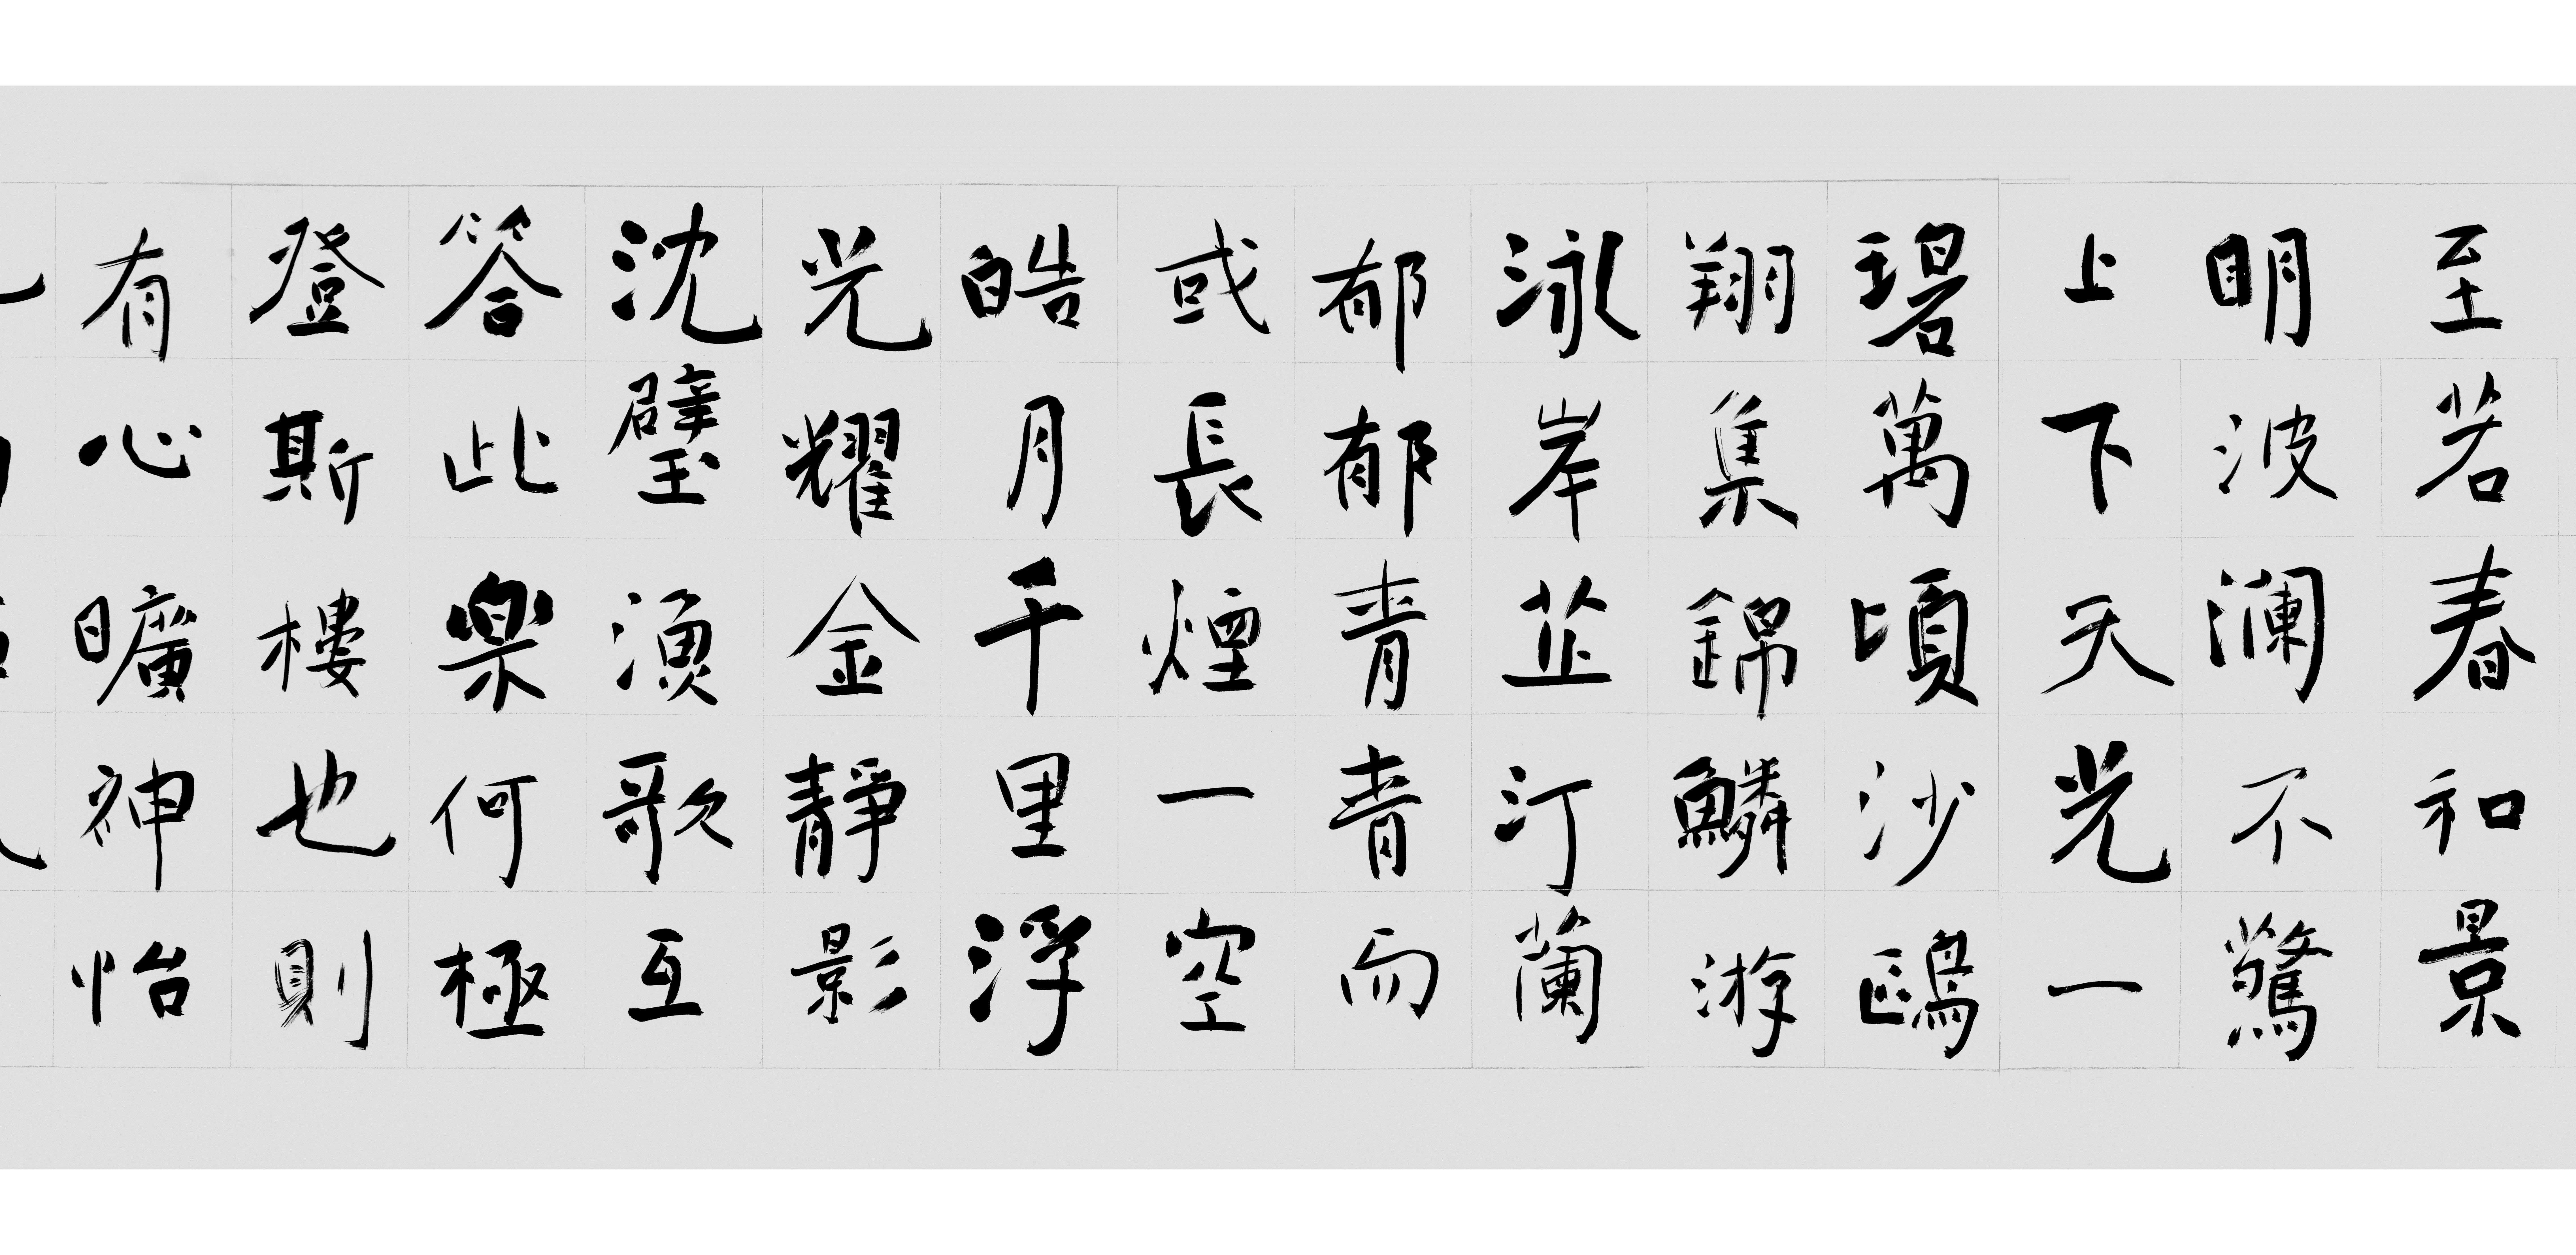 至若春和景
明波澜不驚
上下天光一
碧萬頃沙鷗
翔集錦鱗游
泳岸芷汀蘭
郁郁青青而
或長煙一空
皓月千里浮
光耀金靜影
沈璧漁歌互
答此樂何極
登斯樓也則
有心曠神怡